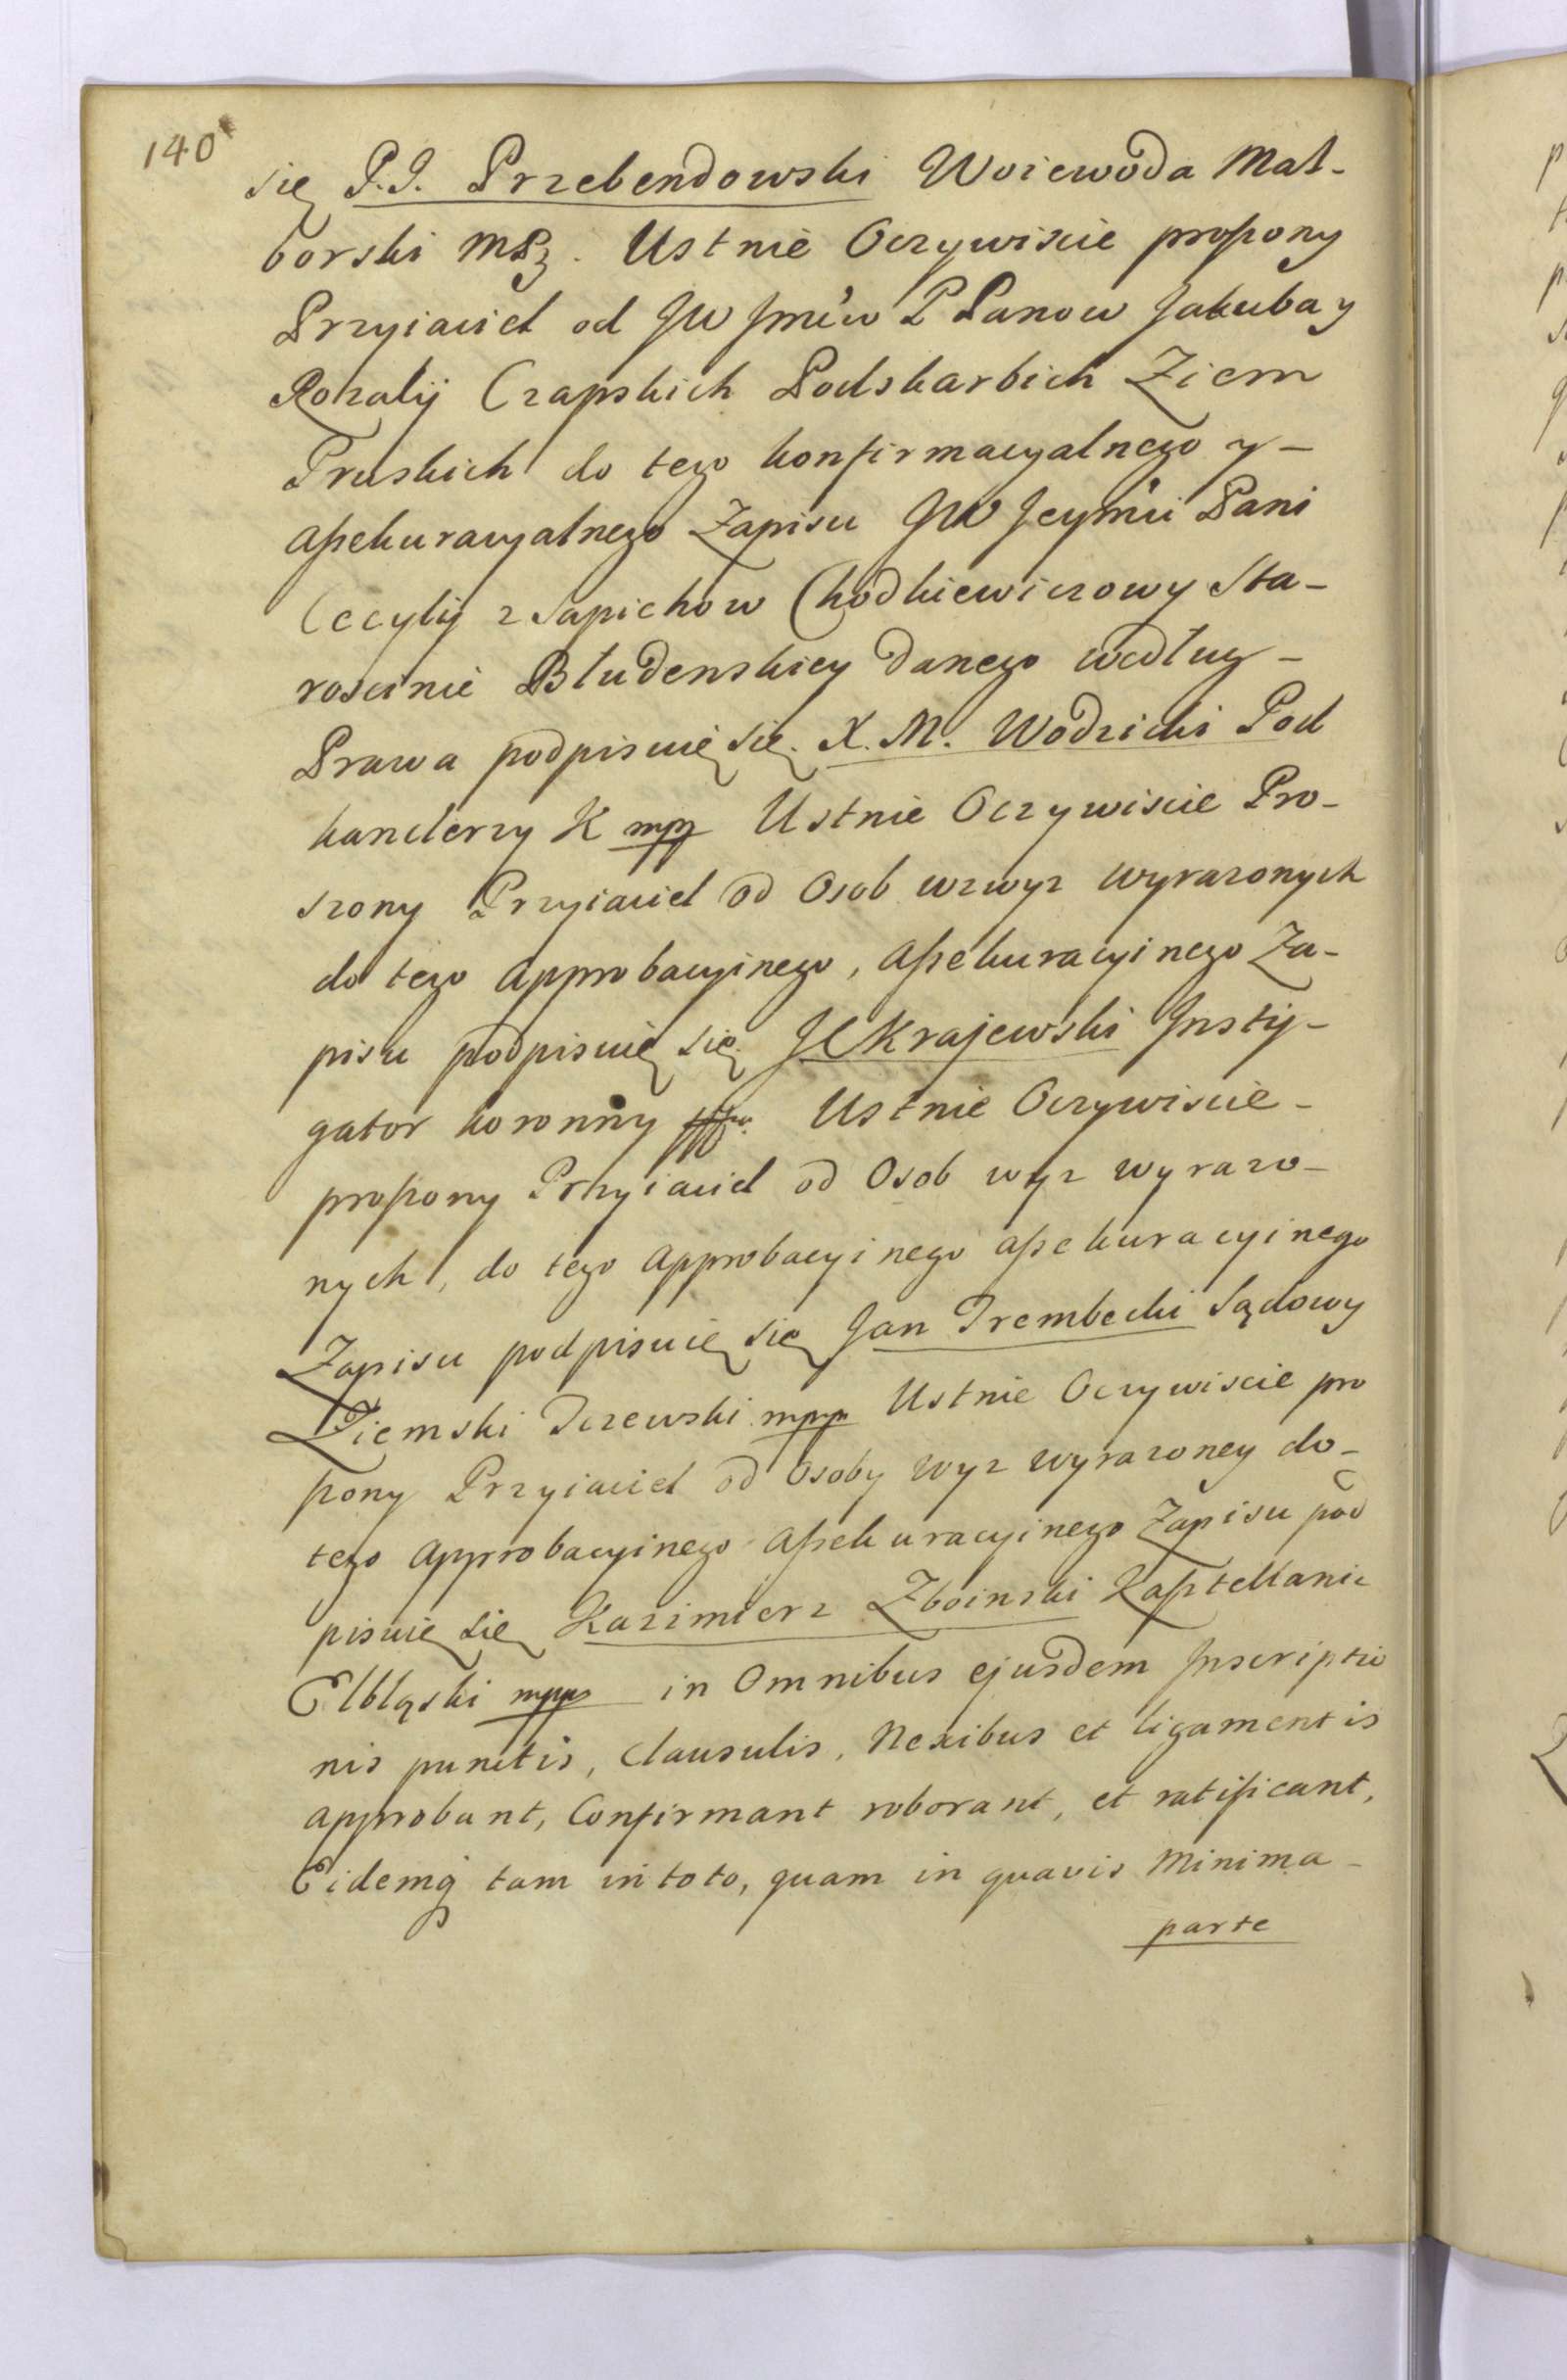 140
się P. J. Przebendowski Woiewoda Mal-
borski MPz. Ustnie Oczywiscie proszony
Przyiaciel od JW Jmciow P Panow Jakuba y
Rozalij Czapskich Podskarbich Ziem
Pruskich do tego konfirmacyalnego y-
assekuracyalnego Zapisu JW Jeymci Pani
Cecylij z Sapiehow Chodkiewiczowy Sta-
roscinie Błudenskiey danego według-
Prawa podpisuię się. X. M. Wodzicki Pod
kanclerzy K mpp Ustnie Oczywiscie Pro-
szony Przyiaciel od Osob wzwyz wyrazonych
do tego Approbacyinego, Assekuracyinego Za-
pisu podpisuię się JCKrajewski Insty-
gator koronny Ustnie Oczywiscie-
proszony Przyiaciel od Osob wyz wyrazo-
nych, do tego Approbacyinego assekuracyinego
Zapisu podpisuię się Jan Trembecki Sądowy
Ziemski Tczewski mpp Ustnie Oczywiscie pro
szony Przyiaciel od Osoby wyz wyrazoney do-
tego Approbacyinego Assekuracyinego Zapisu pod
pisuię się Kazimierz Zboinski Kasztellanic
Elbląski mpp in Omnibus ejusdem Inscriptio
nis punctis, Clausulis, Nexibus et ligamentis
approbant, Confirmant roborant, et ratificant,
Eidemq̃ tam in toto, quam in quavis Minima-
parte